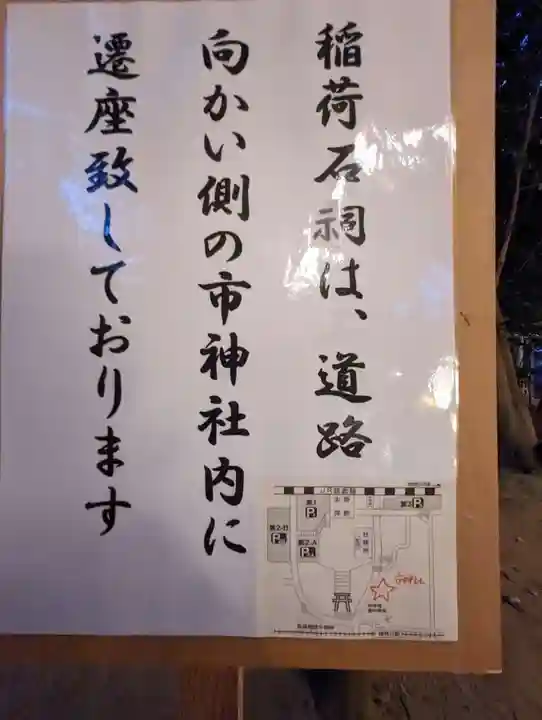 稲荷石祠は、道路
向かい側の市神社内に
遷座致しております
第1
P
第2-B
P
第2-A
P
第3
P